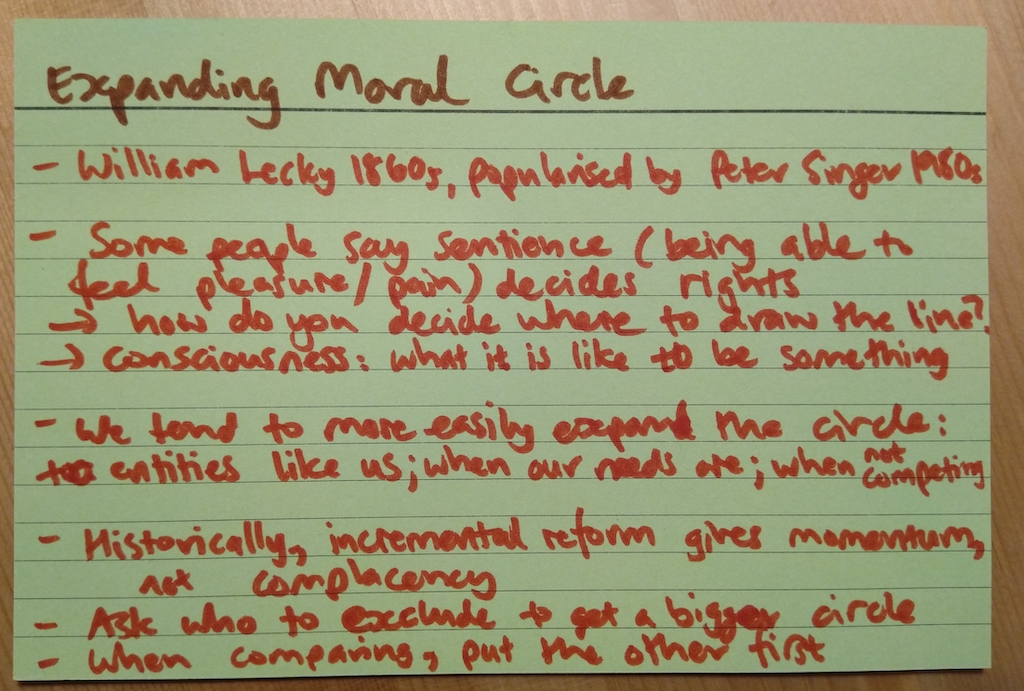 Expanding Moral Circle
- William Lecky 1860s, popularised by Peter Singer 1980s
- Some people say sentience (being able to
feel pleasure/pain) decides rights
→ how do you decide where to draw the line?
→ consciousness: what it is like to be something
- We tend to more easily expand the circle:
entities like us; when our needs are; when not competing
- Historically, incremental reform gives momentum,
not complacency
- Ask who to exclude to get a bigger circle
- When comparing, put the other first